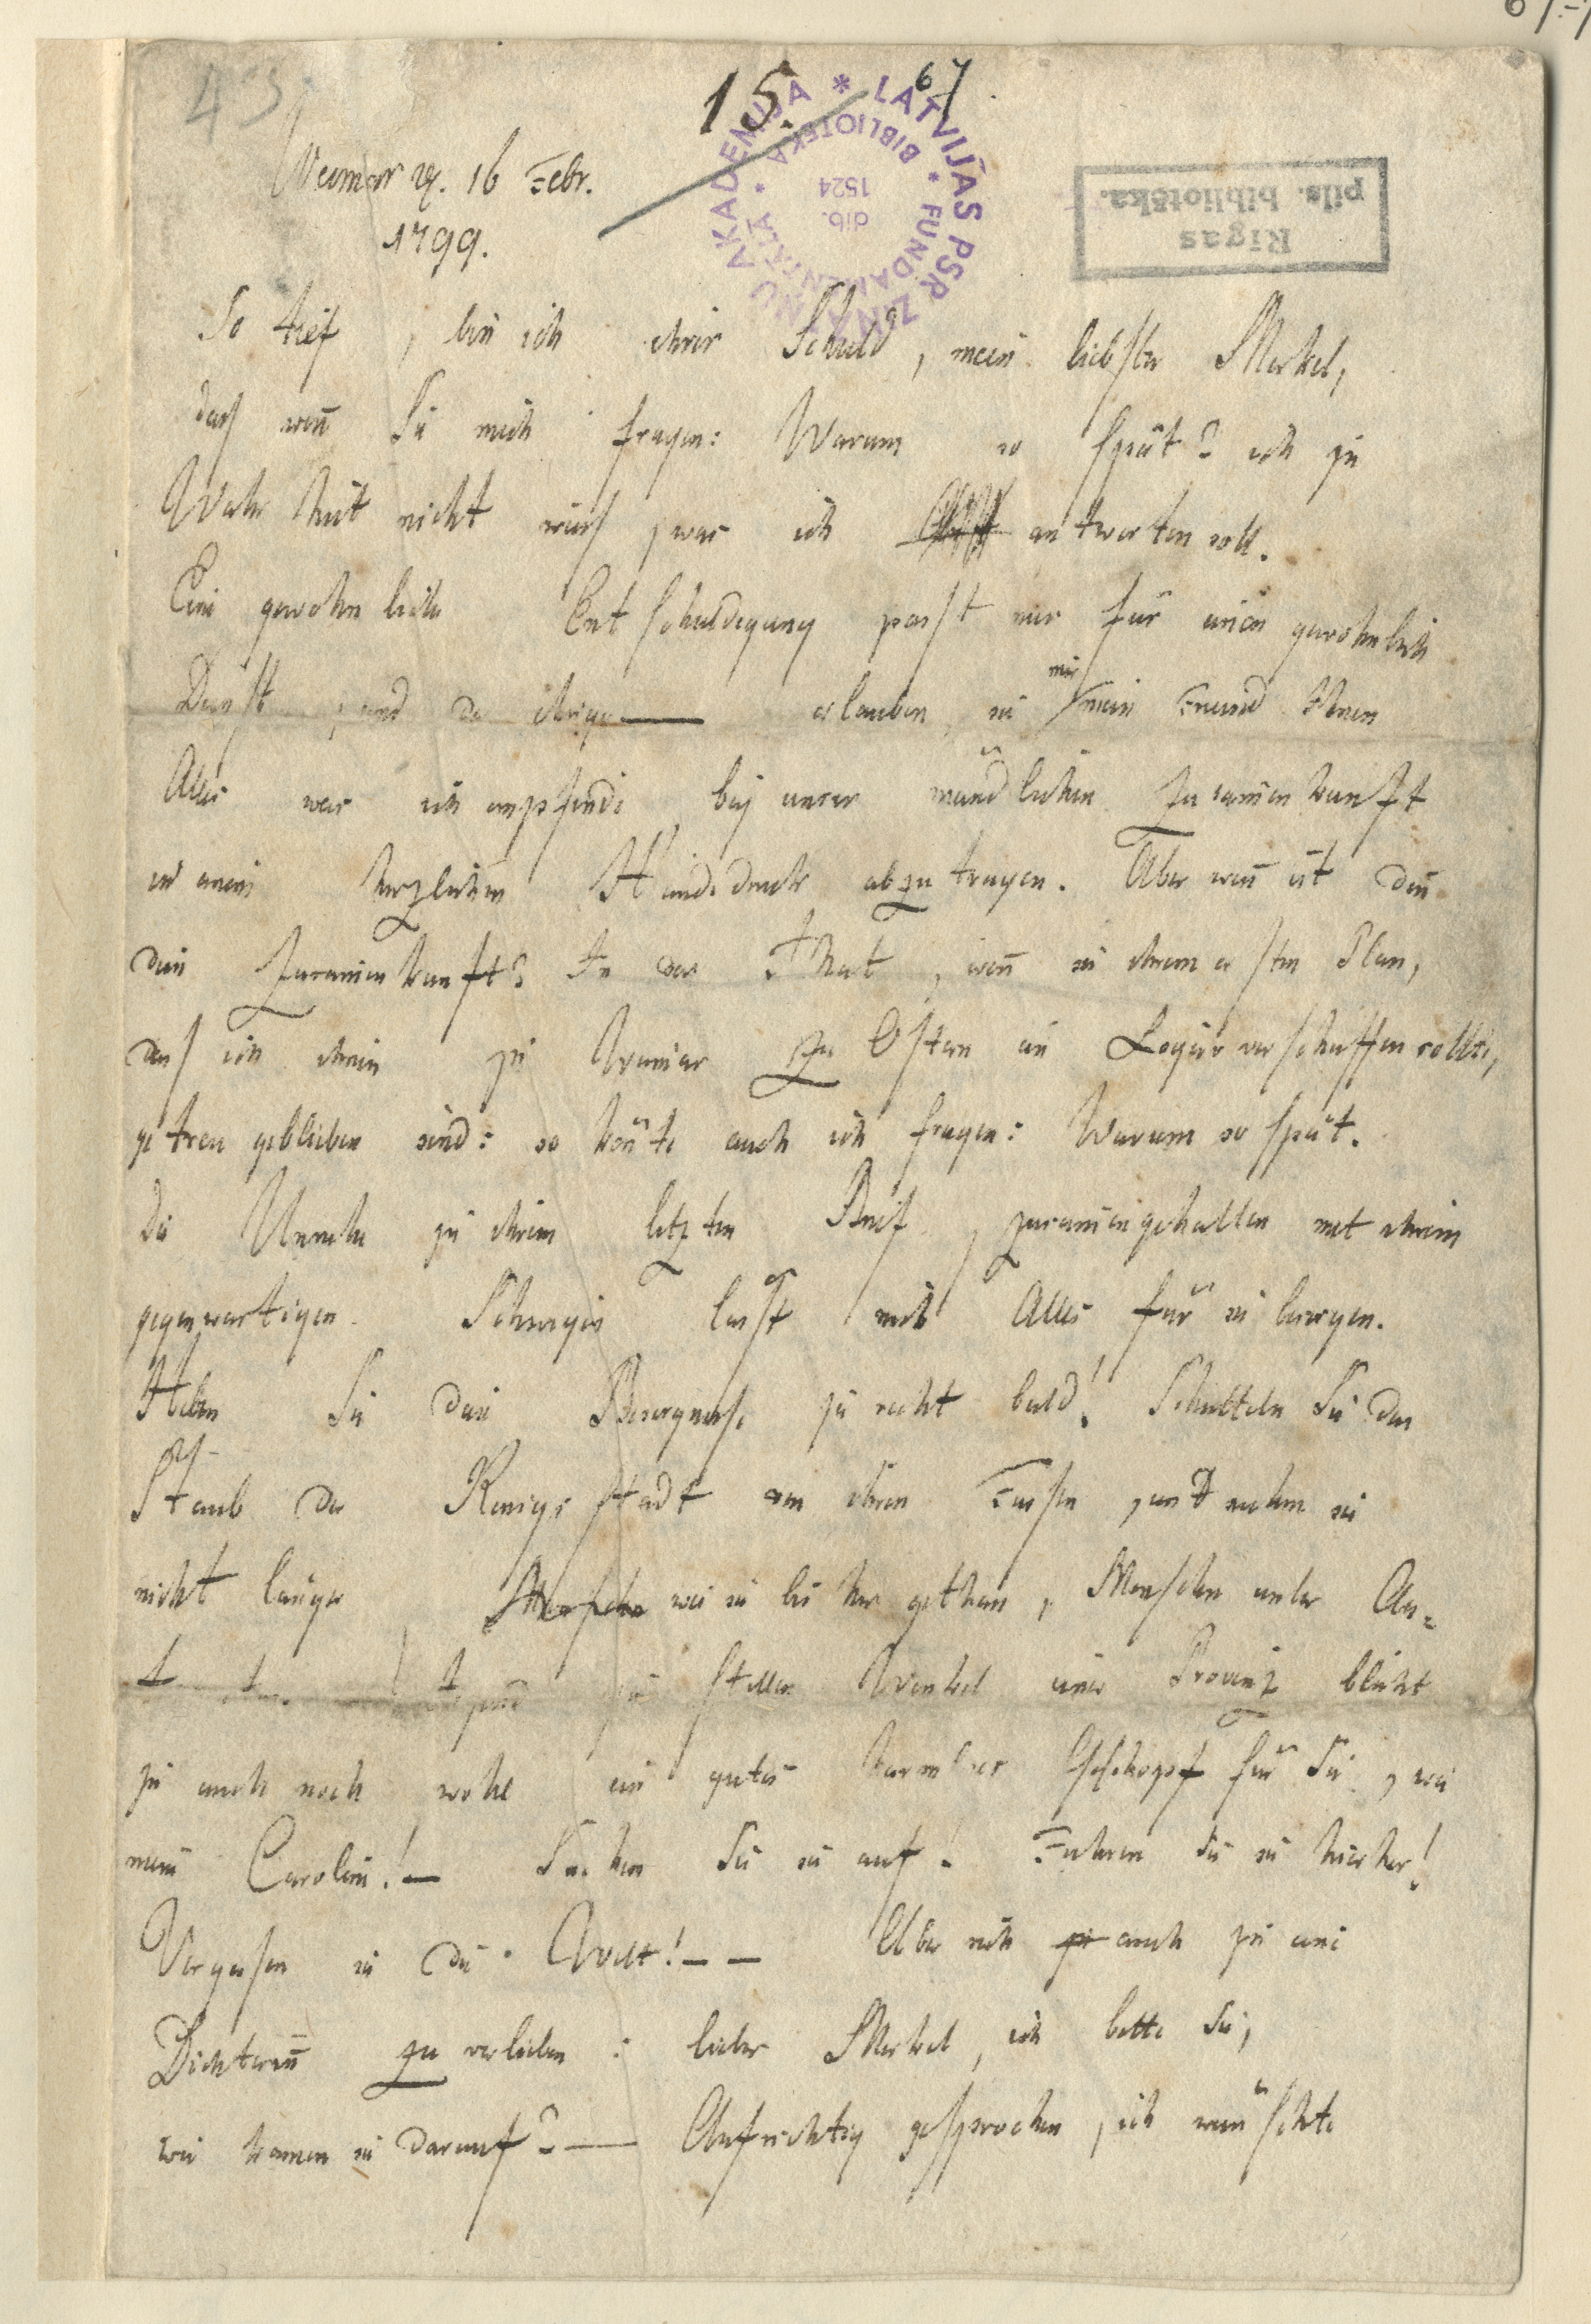 67
43
15.
67.
LATVIJAS PSR ZINĀTŅU AKADEMIJA * FUNDAMENTĀLĀ BIBLIOTĒKA *
dib. 1524
Rīgas
pils. bibliotēka.
Weimar d. 16 Febr.
1799.
So tief, bin ich ihrer Schuld, mein liebster Merkel,
dass weñ Sie mich fragen: Warum so spät? ich zu
Wahrheit nicht weiss, was ich antworten soll.
Eine gewohnliche Entschuldigung passt nur für einen gewohnlich
Dienst, und der ihrige — erlauben sie mir mein Freund Ihnen
Alles was ich empfinde bey unsrer mündlichen Zusam̃enkunft
in einem herzlichen Händedruck abzutragen. Aber wañ ist deñ
diese Zusam̃enkunft? In der That, weñ sie ihrem ersten Plan,
dass ich ihnen zu Weimar zu Ostern ein Logie verschaffen sollte,
getreu geblieben sind: so köñte auch ich fragen: Warum so spät.
Die Unruhe in ihrem letzten Brief, zusam̃engehalten mit ihrem
gegenwärtigen Schweigen lässt mich Alles für sie besorgen.
Heben Sie diese Besorgnisse ja recht bald! Schütteln Sie den
Staub der Königsstadt von ihren Fussen, und suchen sie
nicht länger, wie sie bisher gethan, Menschen unter
stillen Winkel einer Provinz blüht
ja auch noch wohl ein gutes harmloses Geschöpf für Sie, wie
meine Caroline! — Suchen Sie sie auf! Fuhren Sie sie hierher!
Vergessen sie die Welt! — — Aber sich auch in eine
Dichteriñ zu verlieben: lieber Merkel, ich bitte Sie,
wie kamen sie darauf? — Aufrichtig gesprochen, ich wünschte